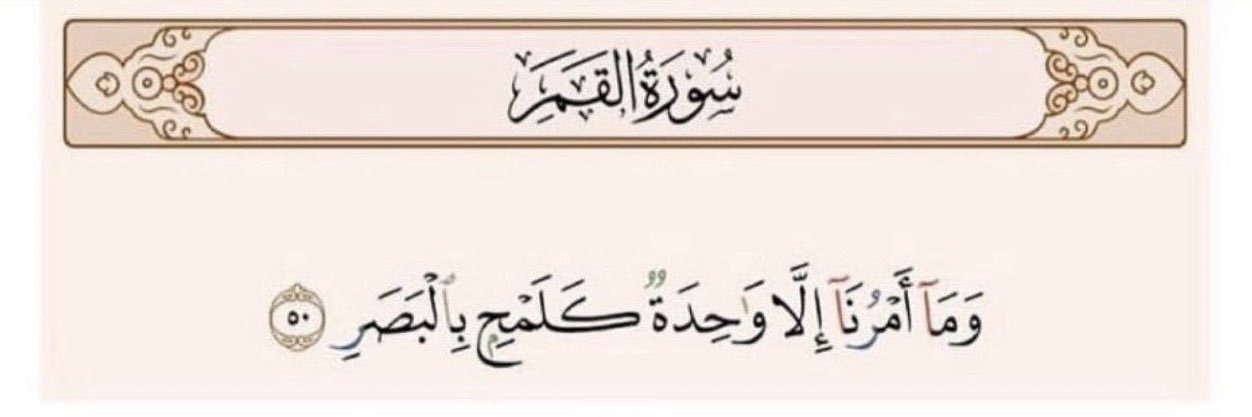 سُورَةُ القَمَرِ
وَمَآ أَمْرُنَآ إِلَّا وَٰحِدَةٌ كَلَمْحٍۭ بِٱلْبَصَرِ ٥٠